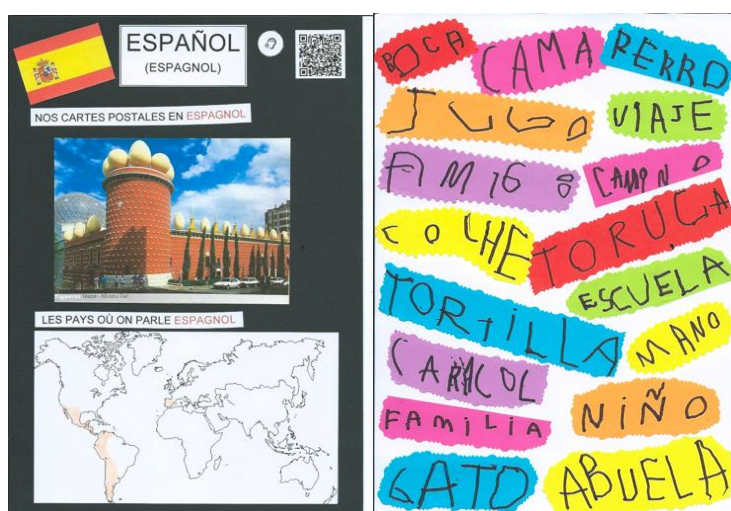 ESPAÑOL
(ESPAGNOL)
NOS CARTES POSTALES EN ESPAGNOL
Teatre - Museu Dalí
LES PAYS OÙ ON PARLE ESPAGNOL
BOCA
CAMA
PERRO
JUGO
VIAJE
AMIGO
CAMINO
COCHE
TORUGA
ESCUELA
TORTILLA
MANO
CARACOL
FAMILIA
NIÑO
GATO
ABUELA